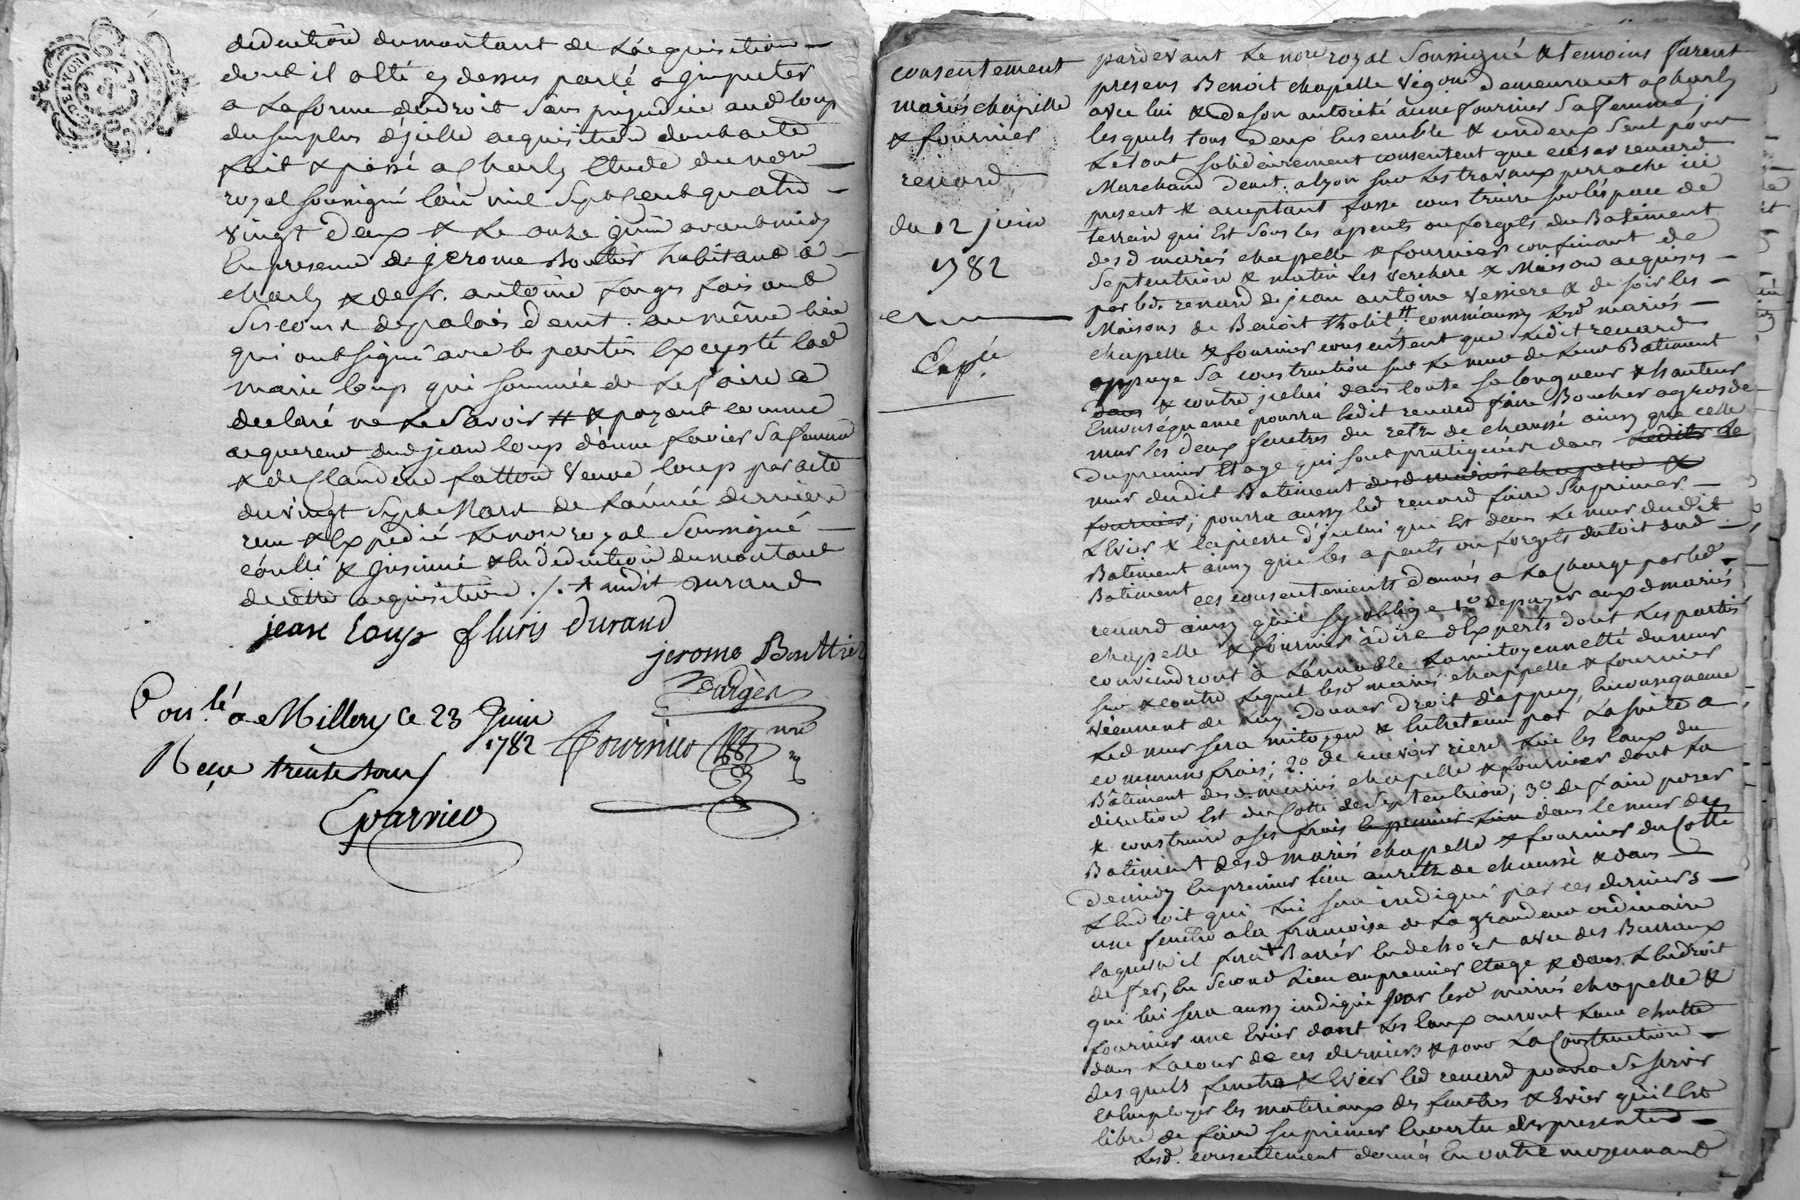 deduction du montant de Lacquisition
dont il a été cy dessus parlé a imputer
a La forme du droit sans prejudice aud loup
du surplus d'jcelle acquisition dont acte
fait & passé a Charly Etude du nore
royal soussigné l'an mil sept cent quatre
vingt deux & Le onze juin avant midy
En presence de jerome Bouttier habitant a
charly & de sr. antoine farges faisant
Ses cours de palais demt. au même lieu
qui ont signé avec les parties Excepté lad
marie loup qui sommée de Le faire a
declaré ne Le Savoir # & payant comme
acquereur dud jean loup d'anne favier Sa femme
& de Claudine fatton Veuve loup par acte
du vingt Sept Mars de L'année derniere
recu & Expedié Le nore royal Soussigné
& jnsinué & En deduction du montant
de cette acquisition ./. audit Durand
jean Loup fluris durand
jerome Bouttier
farges
Con.lé a Millery Ce 23 Juin
1782
Reçu trente sous
nre
consentement
mariés chapelle
& fournier
renard
du 12 juin
1782
Exp.ée
pardevant Le nore royal Soussigné & temoins furent
presens Benoit chapelle vig.on demeurant a Charly
avec lui & de son autorité anne fournier Sa femme;
lesquels tous deux Ensemble & un deux Seul pour
Le tout solidairement consentent que cesar renard
Marchand demt. a lyon sur Les travaux perrache ici
present & acceptant fasse construire sur l'espace de
terrein qui Est sous les apents ou forgets du Batiment
desd mariés chapelle & fournier confinant de
Septentrion & matin les verchere & Maison acquises
par led. renard de jean antoine Vessiere & de soir les
Maisons de Benoit tholit comm'aussy Lesd mariés
chapelle & fournier consentent que Ledit renard
appuye Sa construction sur Le mur de Leur Batiment
dans & contre jcelui dans toute sa longueur & hauteur
Enconséquence pourra Ledit renard faire Boucher a gros de
mur les deux fenetres du retz de chaussé ainsy que celle
du premier Etage qui sont pratiquées dans Lesdits Le
mur dudit Batiment desd mariés chapelle &
fournier; pourra aussy led renard faire suprimer
L'Evier & la pierre d'jcelui qui Est dans Le mur dudit
Batiment ainsy que les apents ou forgets du toit dud
Batiment ces consentements donnés a La charge par led
renard ainsy qu'il s'y oblige 1o de payer auxd mariés
chapelle & fournier a dire d'Experts dont Les parties
conviendront a L'amiable La mitoyenneté du mur
sur & contre Lequel lesd mariés chapelle & fournier
viennent de Luy donner droit d'appuy Enconséquence
Led mur sera mitoyen & Entretenu par La suite a
communs frais; 2o. de recevoir riere Lui les Eaux du
Bâtiment desd. mariés chapelle & fournier dont La
direction Est du Cotté de Septentrion; 3o. de faire poser
& construire a ses frais en premier Lieu dans le mur du
Batiment desd mariés chapelle & fournier du Cotté
de midy En premier lieu au retz de chaussé & dans
L'Endroit qui Lui sera indiqué par ces derniers
une fenêtre a la françoise de La grandeur ordinaire
laquelle il fera Barrer En dehors avec des Barraux
de fer, En Second Lieu au premier Etage & dans L'Endroit
qui lui sera aussy indiqué par lesd mariés chapelle &
fournier une Evier dont Les Eaux auront Leur chutte
dans La cour de ces derniers & pour La Construction
desquels fenetre & Evier led renard pourra Se Servir
& Employer les materiaux des fenetres & Evier qu'il Est
libre de faire suprimer En vertu des presentes
Lesd. consentement donnés En outre moyennant